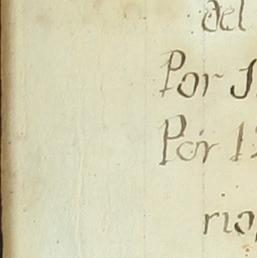 del
Por
Por 1
rio